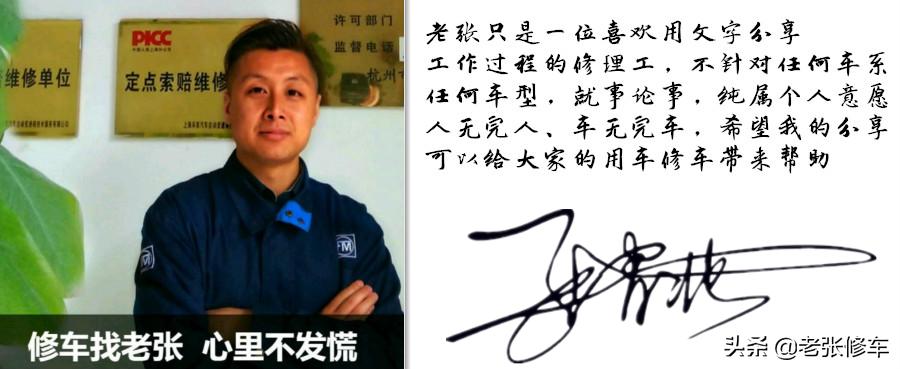 许可部门
监督电话
杭州市
PICC
中国人民上海分公司
维修单位
定点索赔维修
修车找老张 心里不发慌
老张只是一位喜欢用文字分享
工作过程的修理工，不针对任何车系
任何车型，就事论事，纯属个人意愿
人无完人、车无完车，希望我的分享
可以给大家的用车修车带来帮助
头条 @老张修车